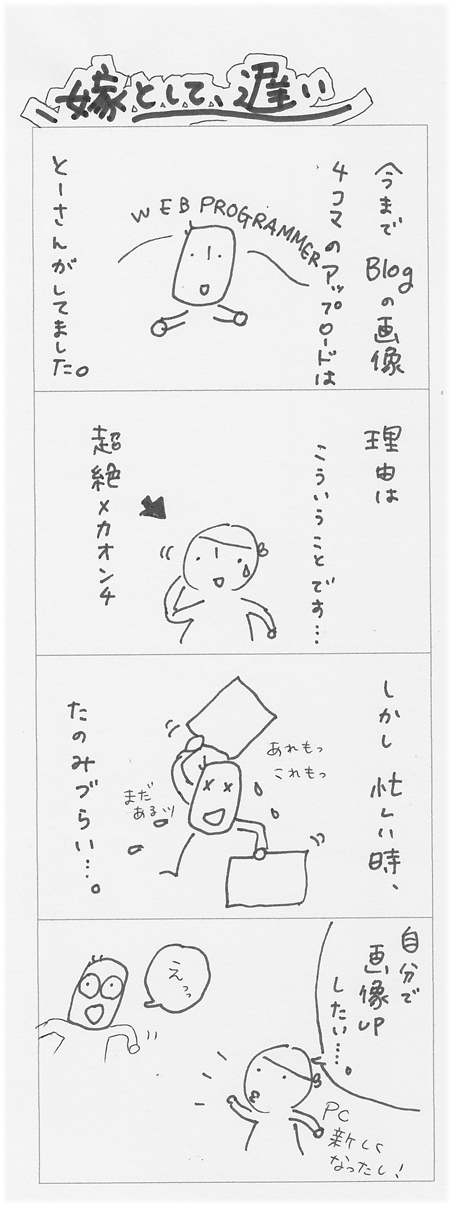 嫁として、遅い
今まで Blogの画像
4コマのアップロードは
WEB PROGRAMMER
とーさんがしてました。
理由は
こういうことです…
超絶メカオンチ
しかし 忙しい時、
あれもっ
これもっ
まだ
あるッ
たのみづらい…。
自分で
画像UP
したい…。
えっっ
PC
新しく
なったし!